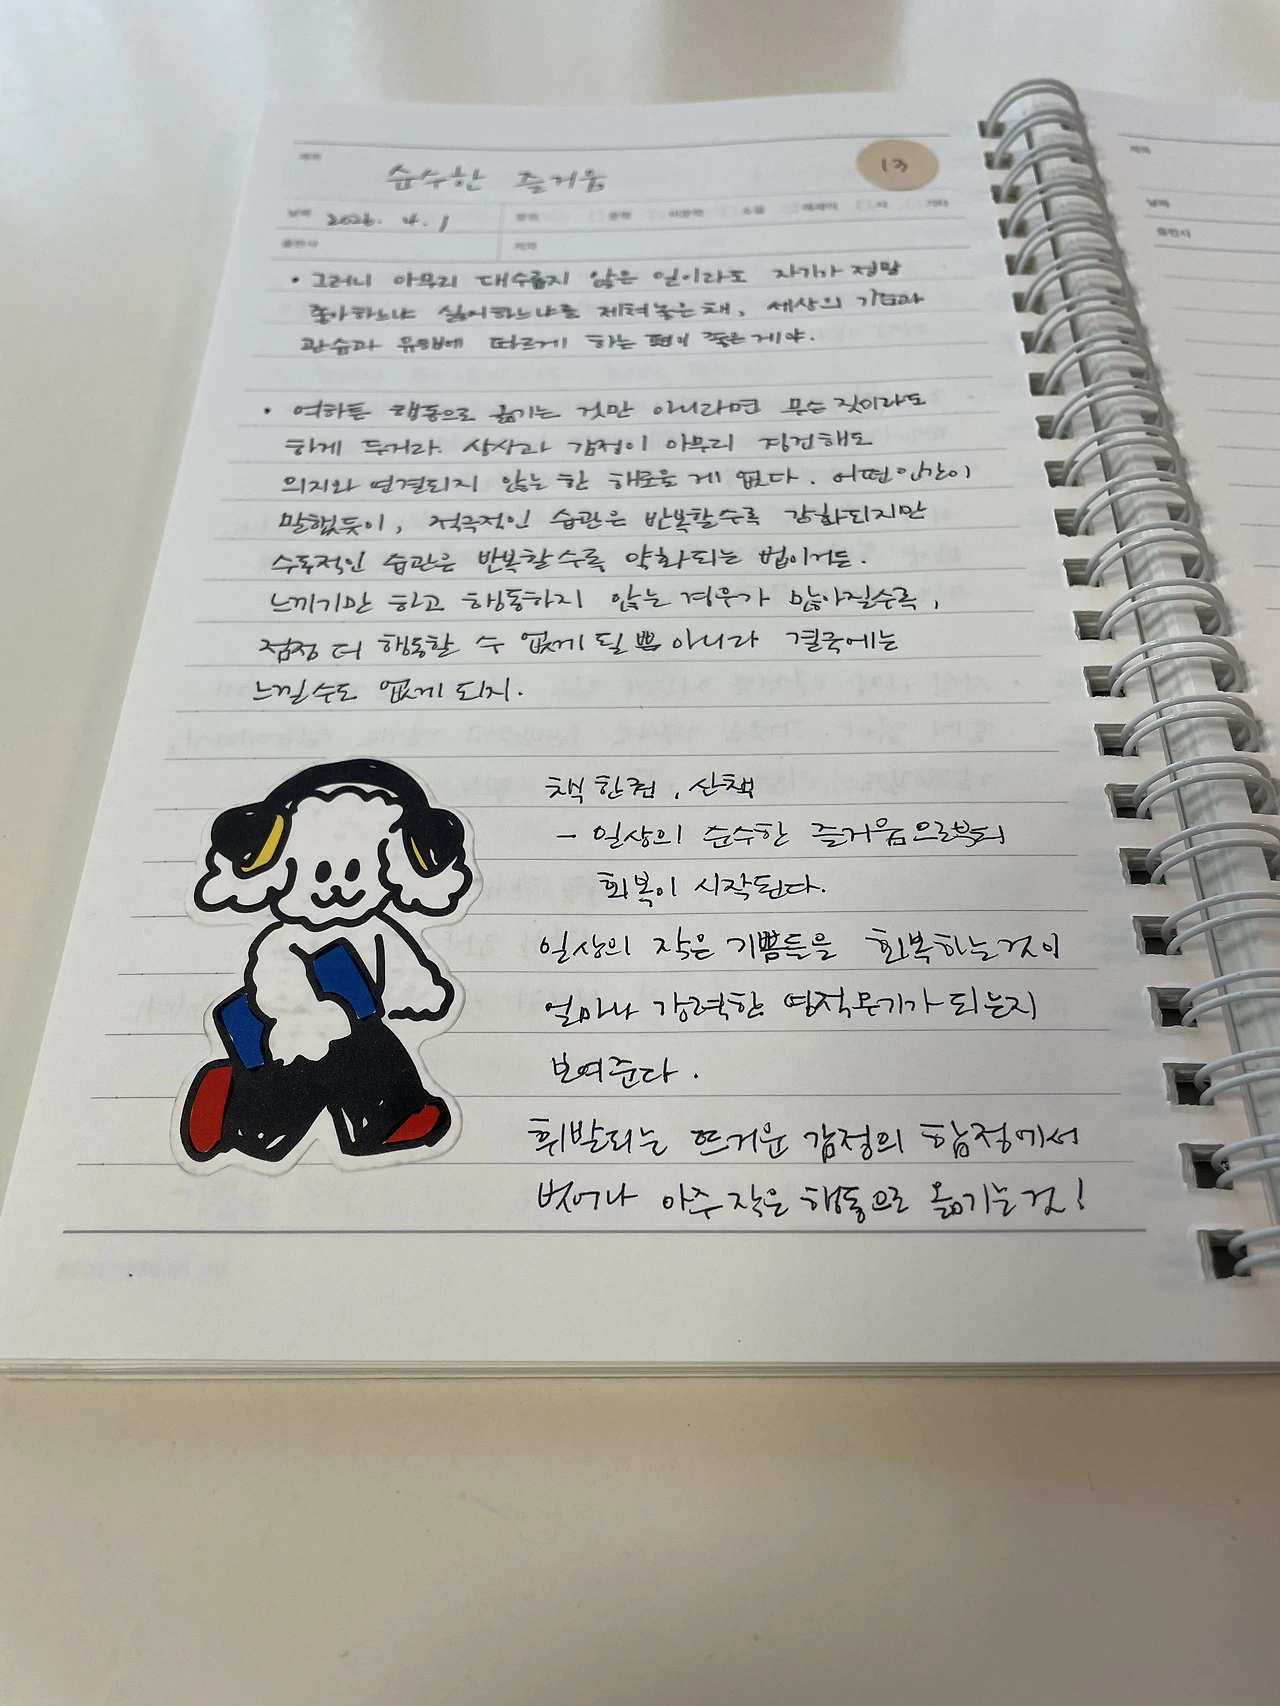 제목
순수한 즐거움
13
날짜 2026. 4. 1
출판사
• 그러니 아무리 대수롭지 않은 일이라도 자기가 정말
좋아하느냐 싫어하느냐를 제쳐놓은채, 세상의 기준과
관습과 유행에 따르게 하는 편이 좋은게야.
• 여하튼 행동으로 옮기는 것만 아니라면 무슨 짓이라도
하게 두거라. 상상과 감정이 아무리 경건해도
의지와 연결되지 않는 한 해로울 게 없다. 어떤 인간이
말했듯이, 적극적인 습관은 반복할수록 강화되지만
수동적인 습관은 반복할수록 약화되는 법이거든.
느끼기만 하고 행동하지 않는 경우가 많아질수록,
점점 더 행동할 수 없게 될 뿐 아니라 결국에는
느낄수도 없게 되지.
책 한권, 산책
- 일상의 순수한 즐거움으로부터
회복이 시작된다.
일상의 작은 기쁨들을 회복하는것이
얼마나 강력한 영적무기가 되는지
보여준다.
휘발되는 뜨거운 감정의 함정에서
벗어나 아주 작은 행동으로 옮기는것!
제목
날짜
출판사